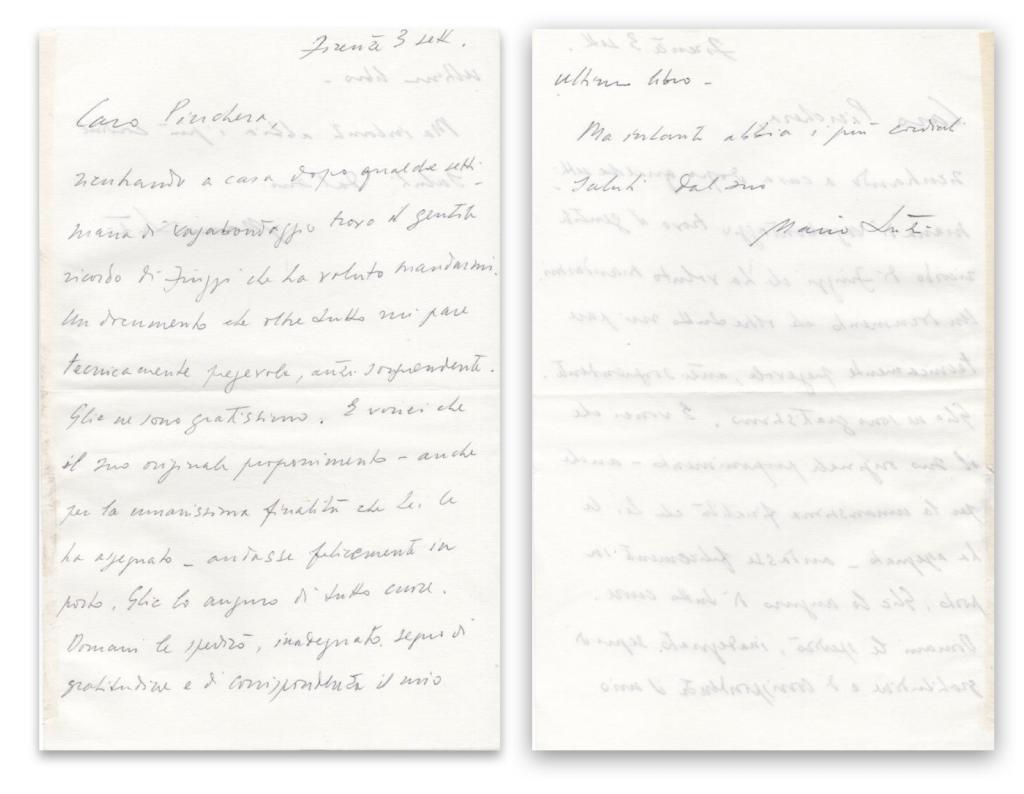 Firenze 3 sett.
Caro Pinchera,
rientrando a casa dopo qualche setti-
mana di vagabondaggio trovo il gentile
ricordo di Fiuggi che ha voluto mandarmi.
Un documento che oltre tutto mi pare
tecnicamente pregevole, anzi sorprendente.
Glie ne sono gratissimo. E vorrei che
il suo originale proponimento – anche
per la umanissima finalità che Lei le
ha assegnato – andasse felicemente in
porto. Glie lo auguro di tutto cuore.
Domani le spedirò, inadeguato segno di
gratitudine e di corrispondenza il mio
ultimo libro –
Ma intanto abbia i più cordiali
saluti dal suo
Mario Luzi